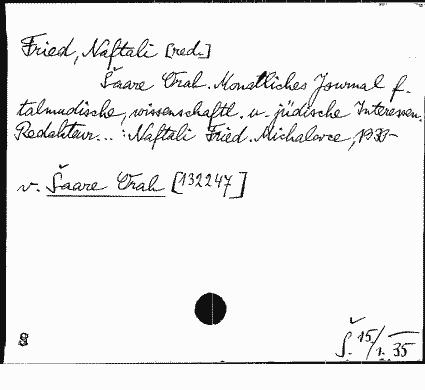 Fried, Naftali [red.]
Šaare Orah. Monatliches Journal f.
talmudische, wissenschaftl. u. jüdische Interessen.
Redakteur... : Naftali Fried. Michalovce, 1933-
v. Šaare Orah [132247]
8
Š. 15/1. 35